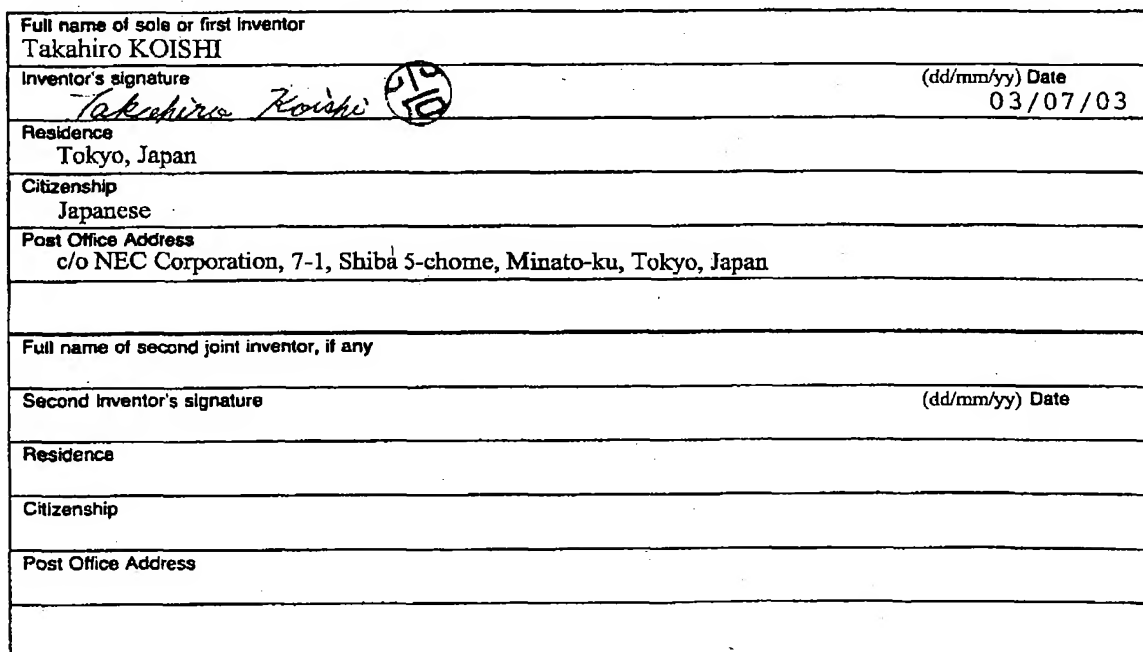 Full name of sole or first Inventor
Takahiro KOISHI
Inventor's signature (dd/mm/yy) Date
Takahiro Koishi 小石 03/07/03
Residence
Tokyo, Japan
Citizenship
Japanese
Post Office Address
c/o NEC Corporation, 7-1, Shiba 5-chome, Minato-ku, Tokyo, Japan
Full name of second joint inventor, if any
Second Inventor's signature (dd/mm/yy) Date
Residence
Citizenship
Post Office Address